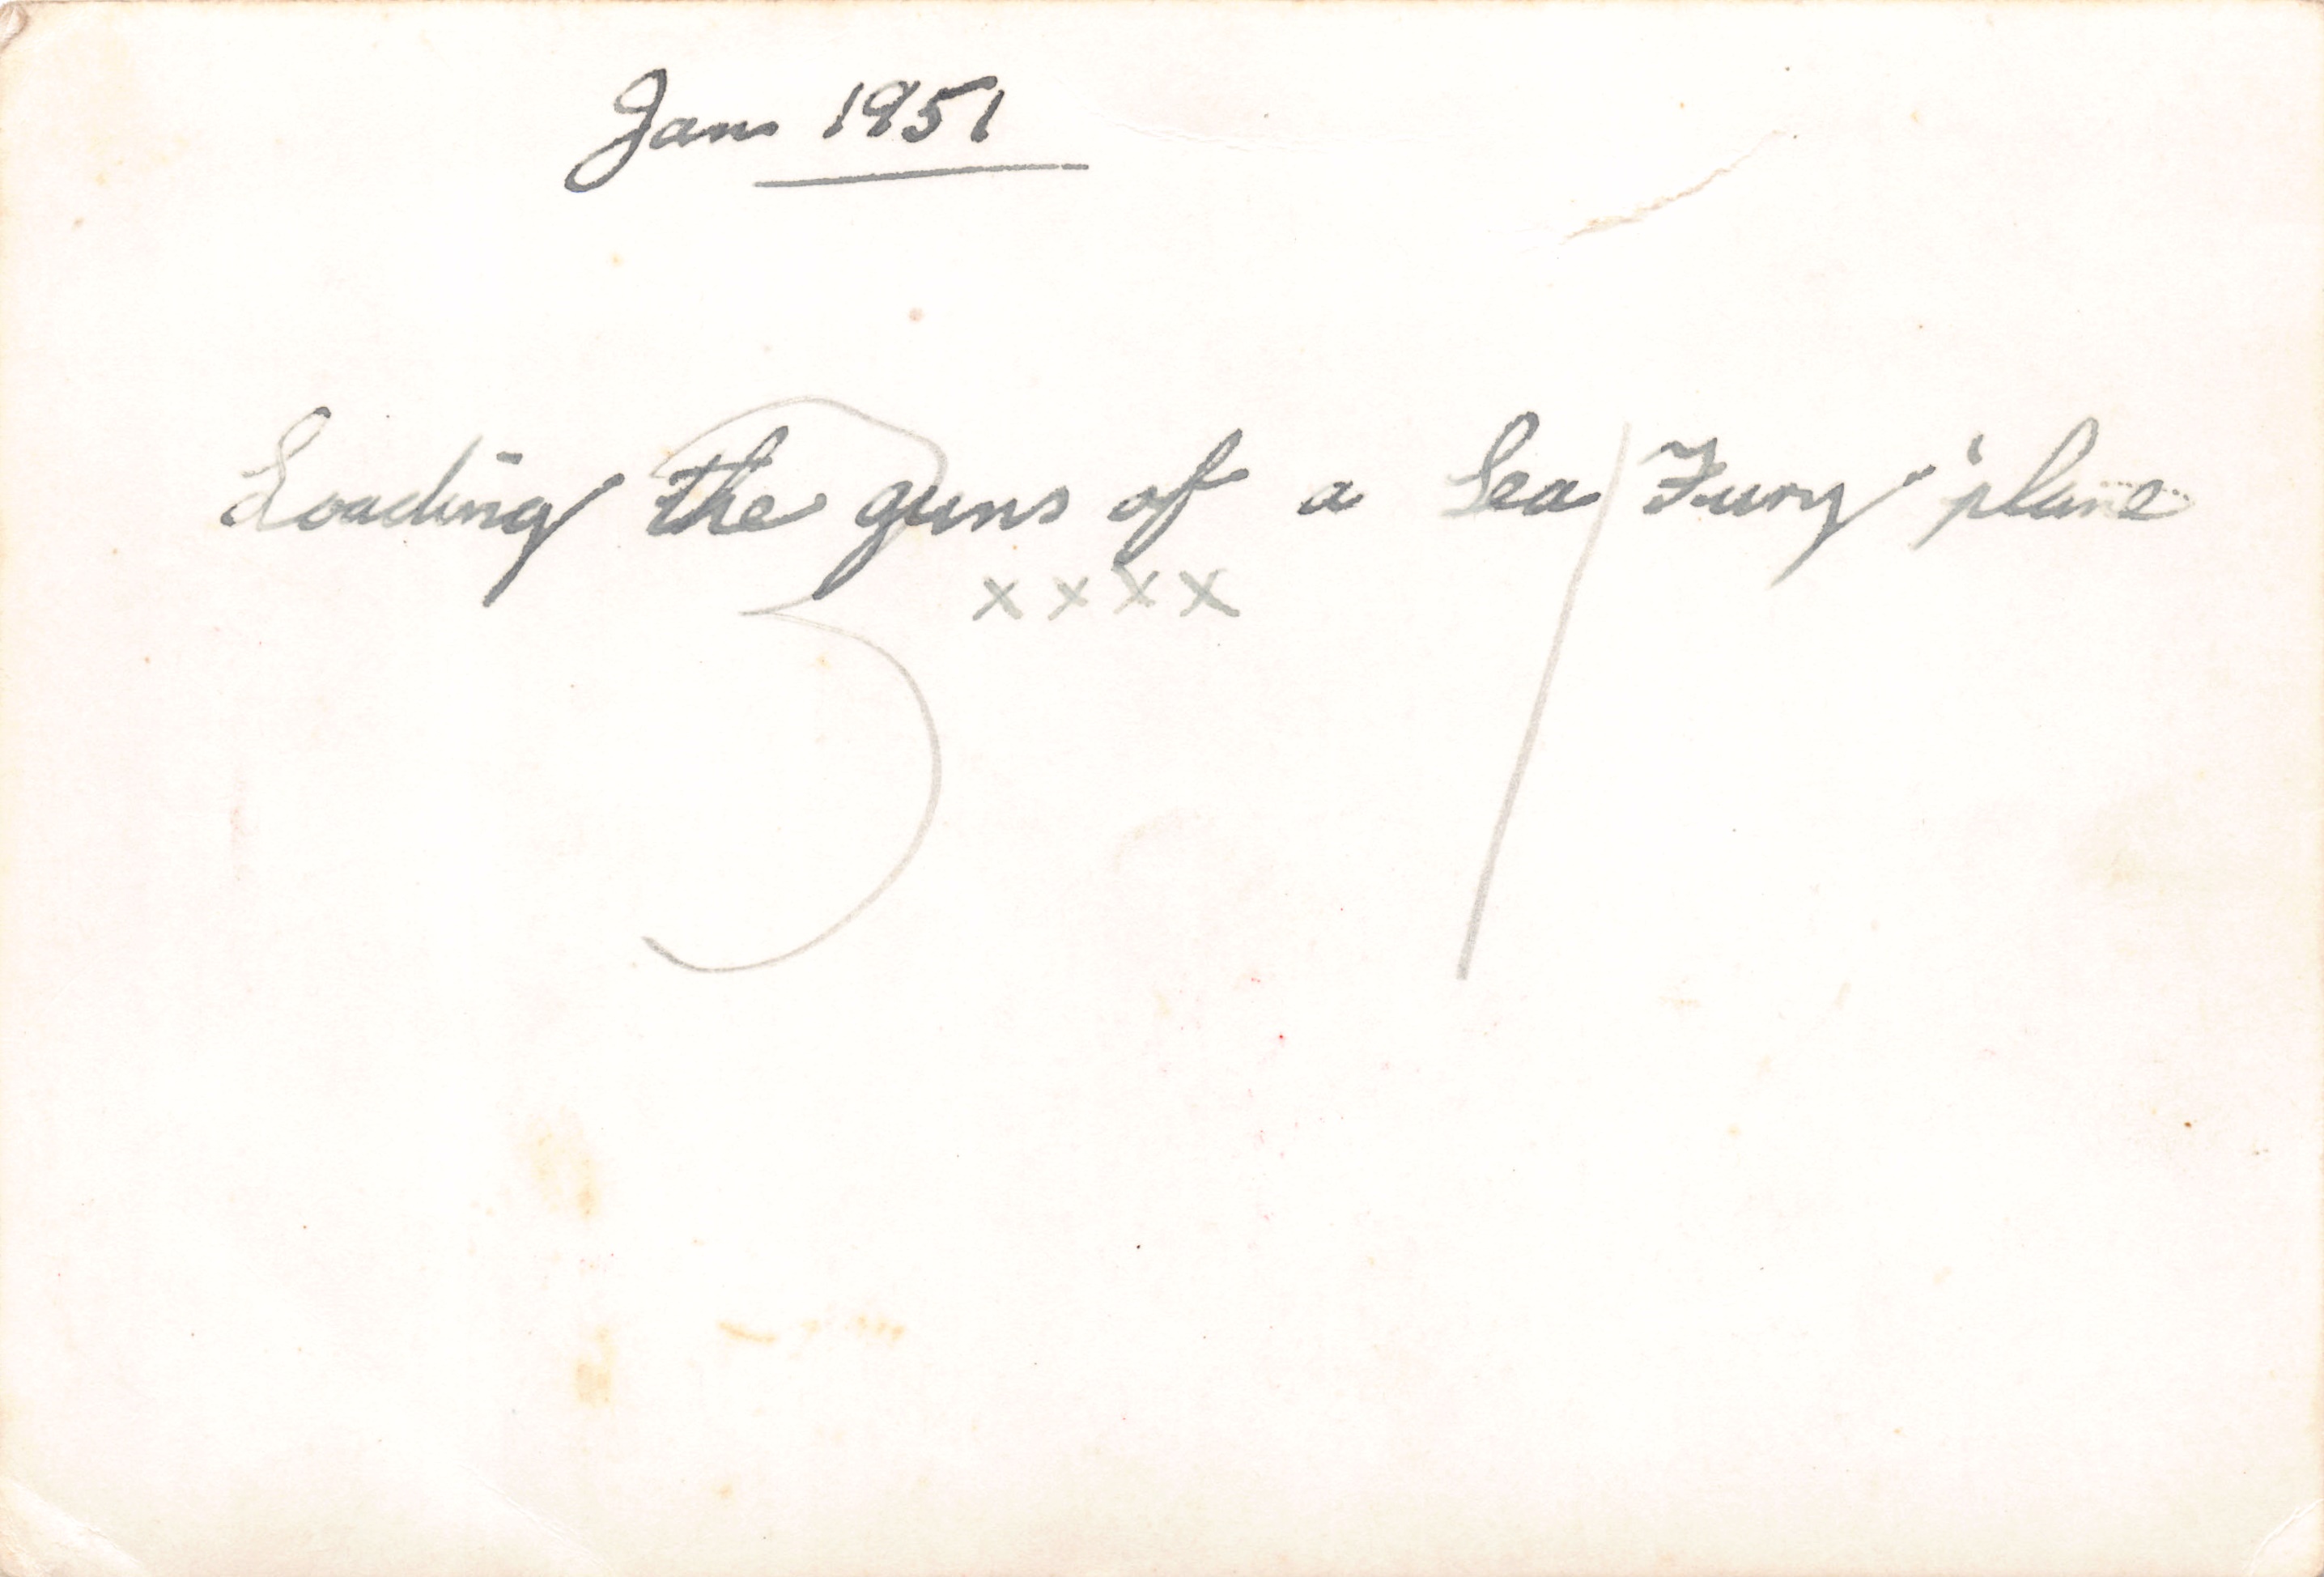 Jan 1951
Loading the guns of a Sea Fury 'plane
x x x x
31